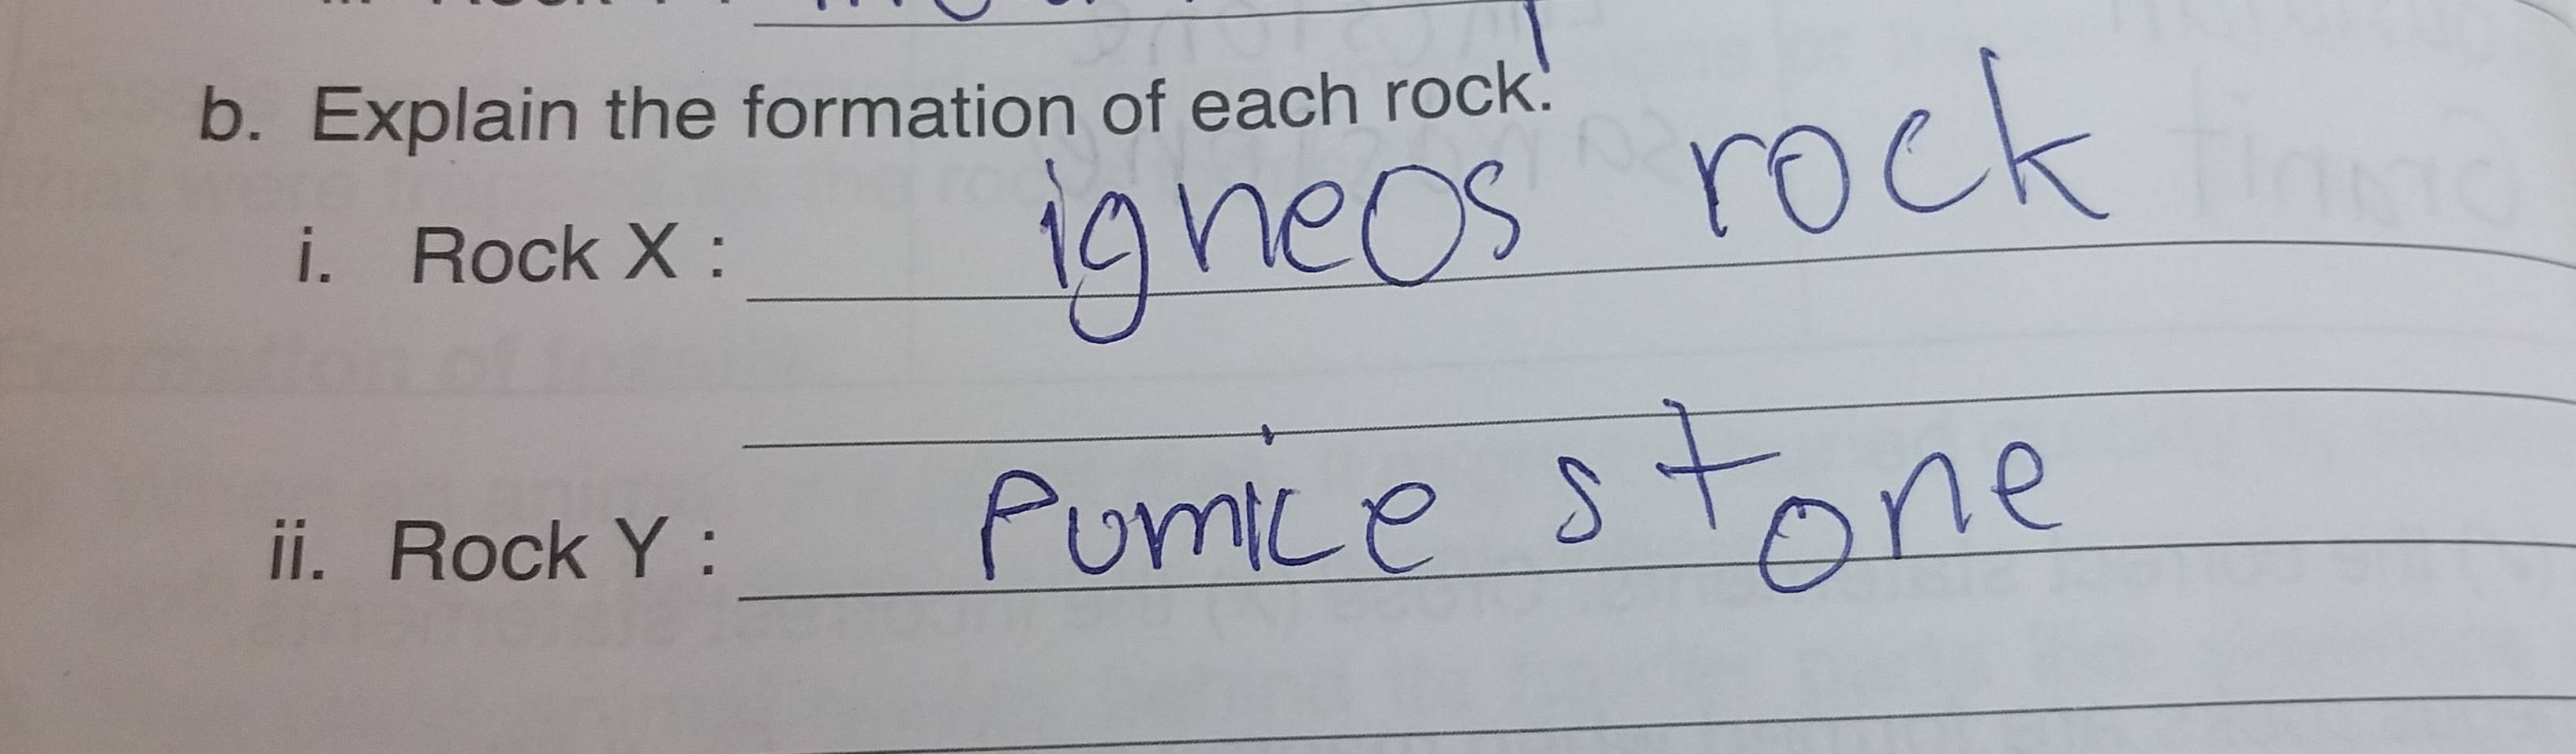 b. Explain the formation of each rock.
i. Rock X : igneos rock
ii. Rock Y : Pumice stone